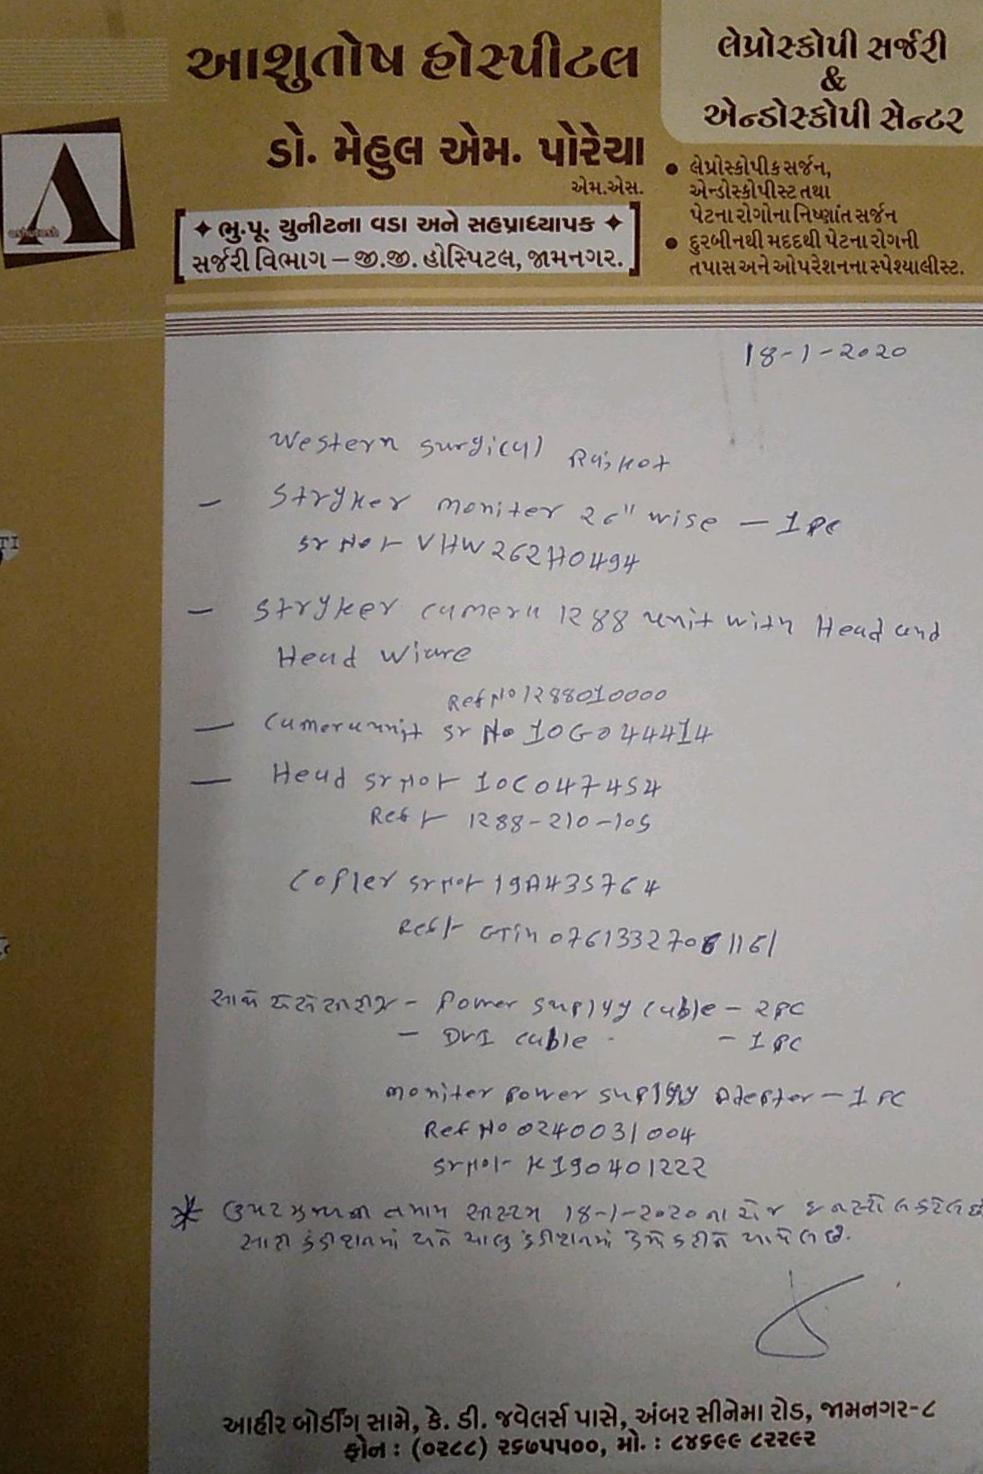 આશુતોષ હોસ્પીટલ
લેપ્રોસ્કોપી સર્જરી
&
એન્ડોસ્કોપી સેન્ટર
ડો. મેહુલ એમ. પોરેચા
એમ.એસ.
ashutosh
✦ ભુ.પૂ. યુનીટના વડા અને સહપ્રાધ્યાપક ✦
સર્જરી વિભાગ – જી.જી. હોસ્પિટલ, જામનગર.
● લેપ્રોસ્કોપીક સર્જન,
એન્ડોસ્કોપીસ્ટ તથા
પેટના રોગોના નિષ્ણાંત સર્જન
● દુરબીનથી મદદથી પેટના રોગની
તપાસ અને ઓપરેશનના સ્પેશ્યાલીસ્ટ.
TI
18-1-2020
Western surgical Rajkot
– Stryker moniter 26" wise – 1 PC
Sr No:- VHW262H0494
– Stryker camera 1288 unit with Head and
Head Wiare
Ref No 1288010000
– Camera unit Sr No 10G044414
– Head Sr No:- 10C047454
Ref:- 1288-210-105
Copler Sr No:- 19A435764
Ref:- GTIN
સાથે – Power suplyy cable – 2 PC
– DVI cable – 1 PC
moniter power suplyy Adepter – 1 PC
Ref No 0240031004
Sr No:- K190401222
* ઉપર તમામ સીસ્ટમ 18-1-2020 ના રોજ ઇન્સ્ટોલ કરેલ છે
સારી કંડીશનમાં અને ચાલુ કંડીશનમાં ડેમો કરીને આપેલ છે.
આહીર બોર્ડીંગ સામે, કે. ડી. જવેલર્સ પાસે, અંબર સીનેમા રોડ, જામનગર-૮
ફોન : (૦૨૮૮) ૨૬૭૫૫૦૦, મો. : ૮૪૬૯૯ ૮૨૨૯૨